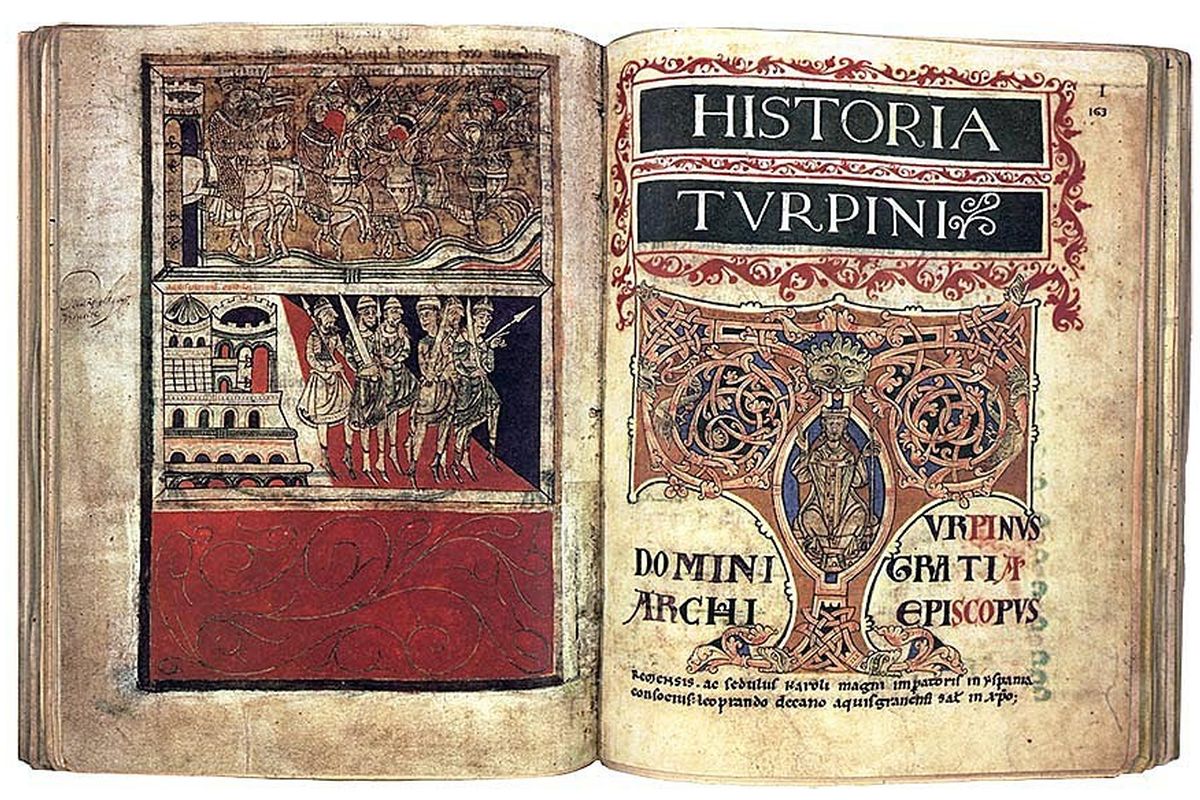 I
163
HISTORIA
TVRPINI
VRPINVS
DOMINI GRATIA
ARCHI EPISCOPVS
REMENSIS. ac sedulus Karoli magni impatoris in yspania
consocius: leoprando decano aquisgranensi sal in xpo;